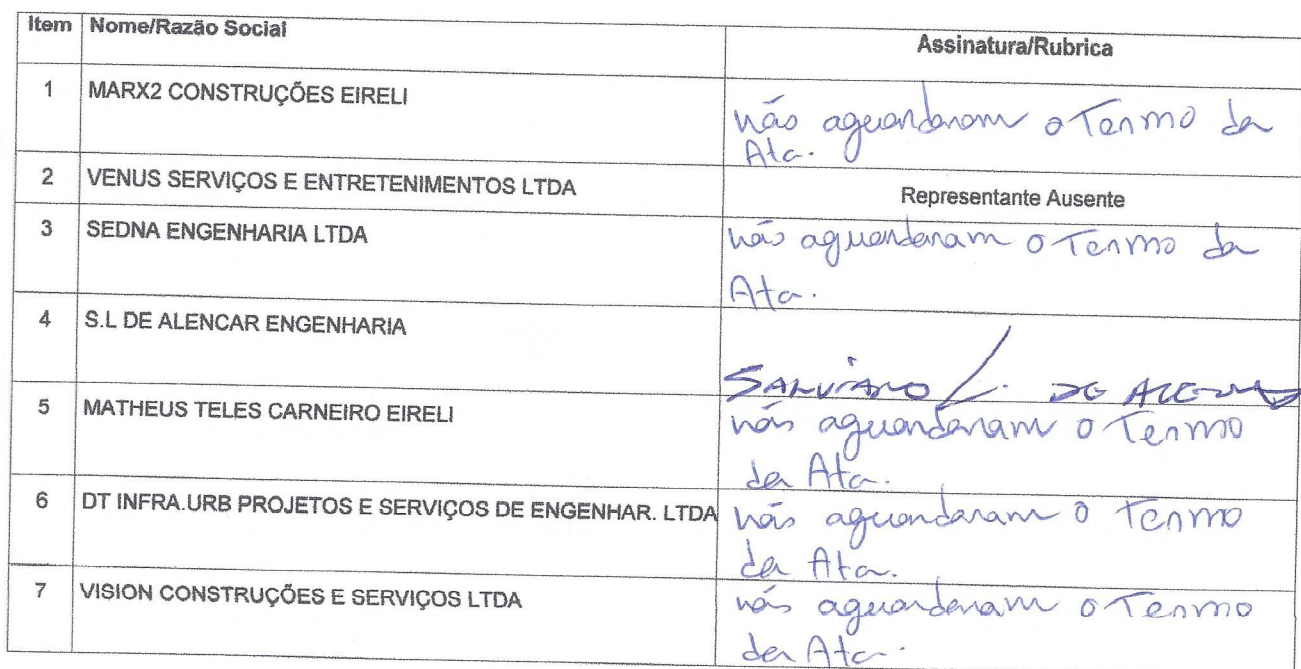 Item Nome/Razão Social Assinatura/Rubrica
1 MARX2 CONSTRUÇÕES EIRELI não aguardaram o Termo da
Ata.
2 VENUS SERVIÇOS E ENTRETENIMENTOS LTDA Representante Ausente
3 SEDNA ENGENHARIA LTDA não aguardaram o Termo da
Ata.
4 S.L DE ALENCAR ENGENHARIA
SALVIANO L. DE ALENCAR
5 MATHEUS TELES CARNEIRO EIRELI não aguardaram o Termo
da Ata.
6 DT INFRA.URB PROJETOS E SERVIÇOS DE ENGENHAR. LTDA não aguardaram o Termo
da Ata.
7 VISION CONSTRUÇÕES E SERVIÇOS LTDA não aguardaram o Termo
da Ata.